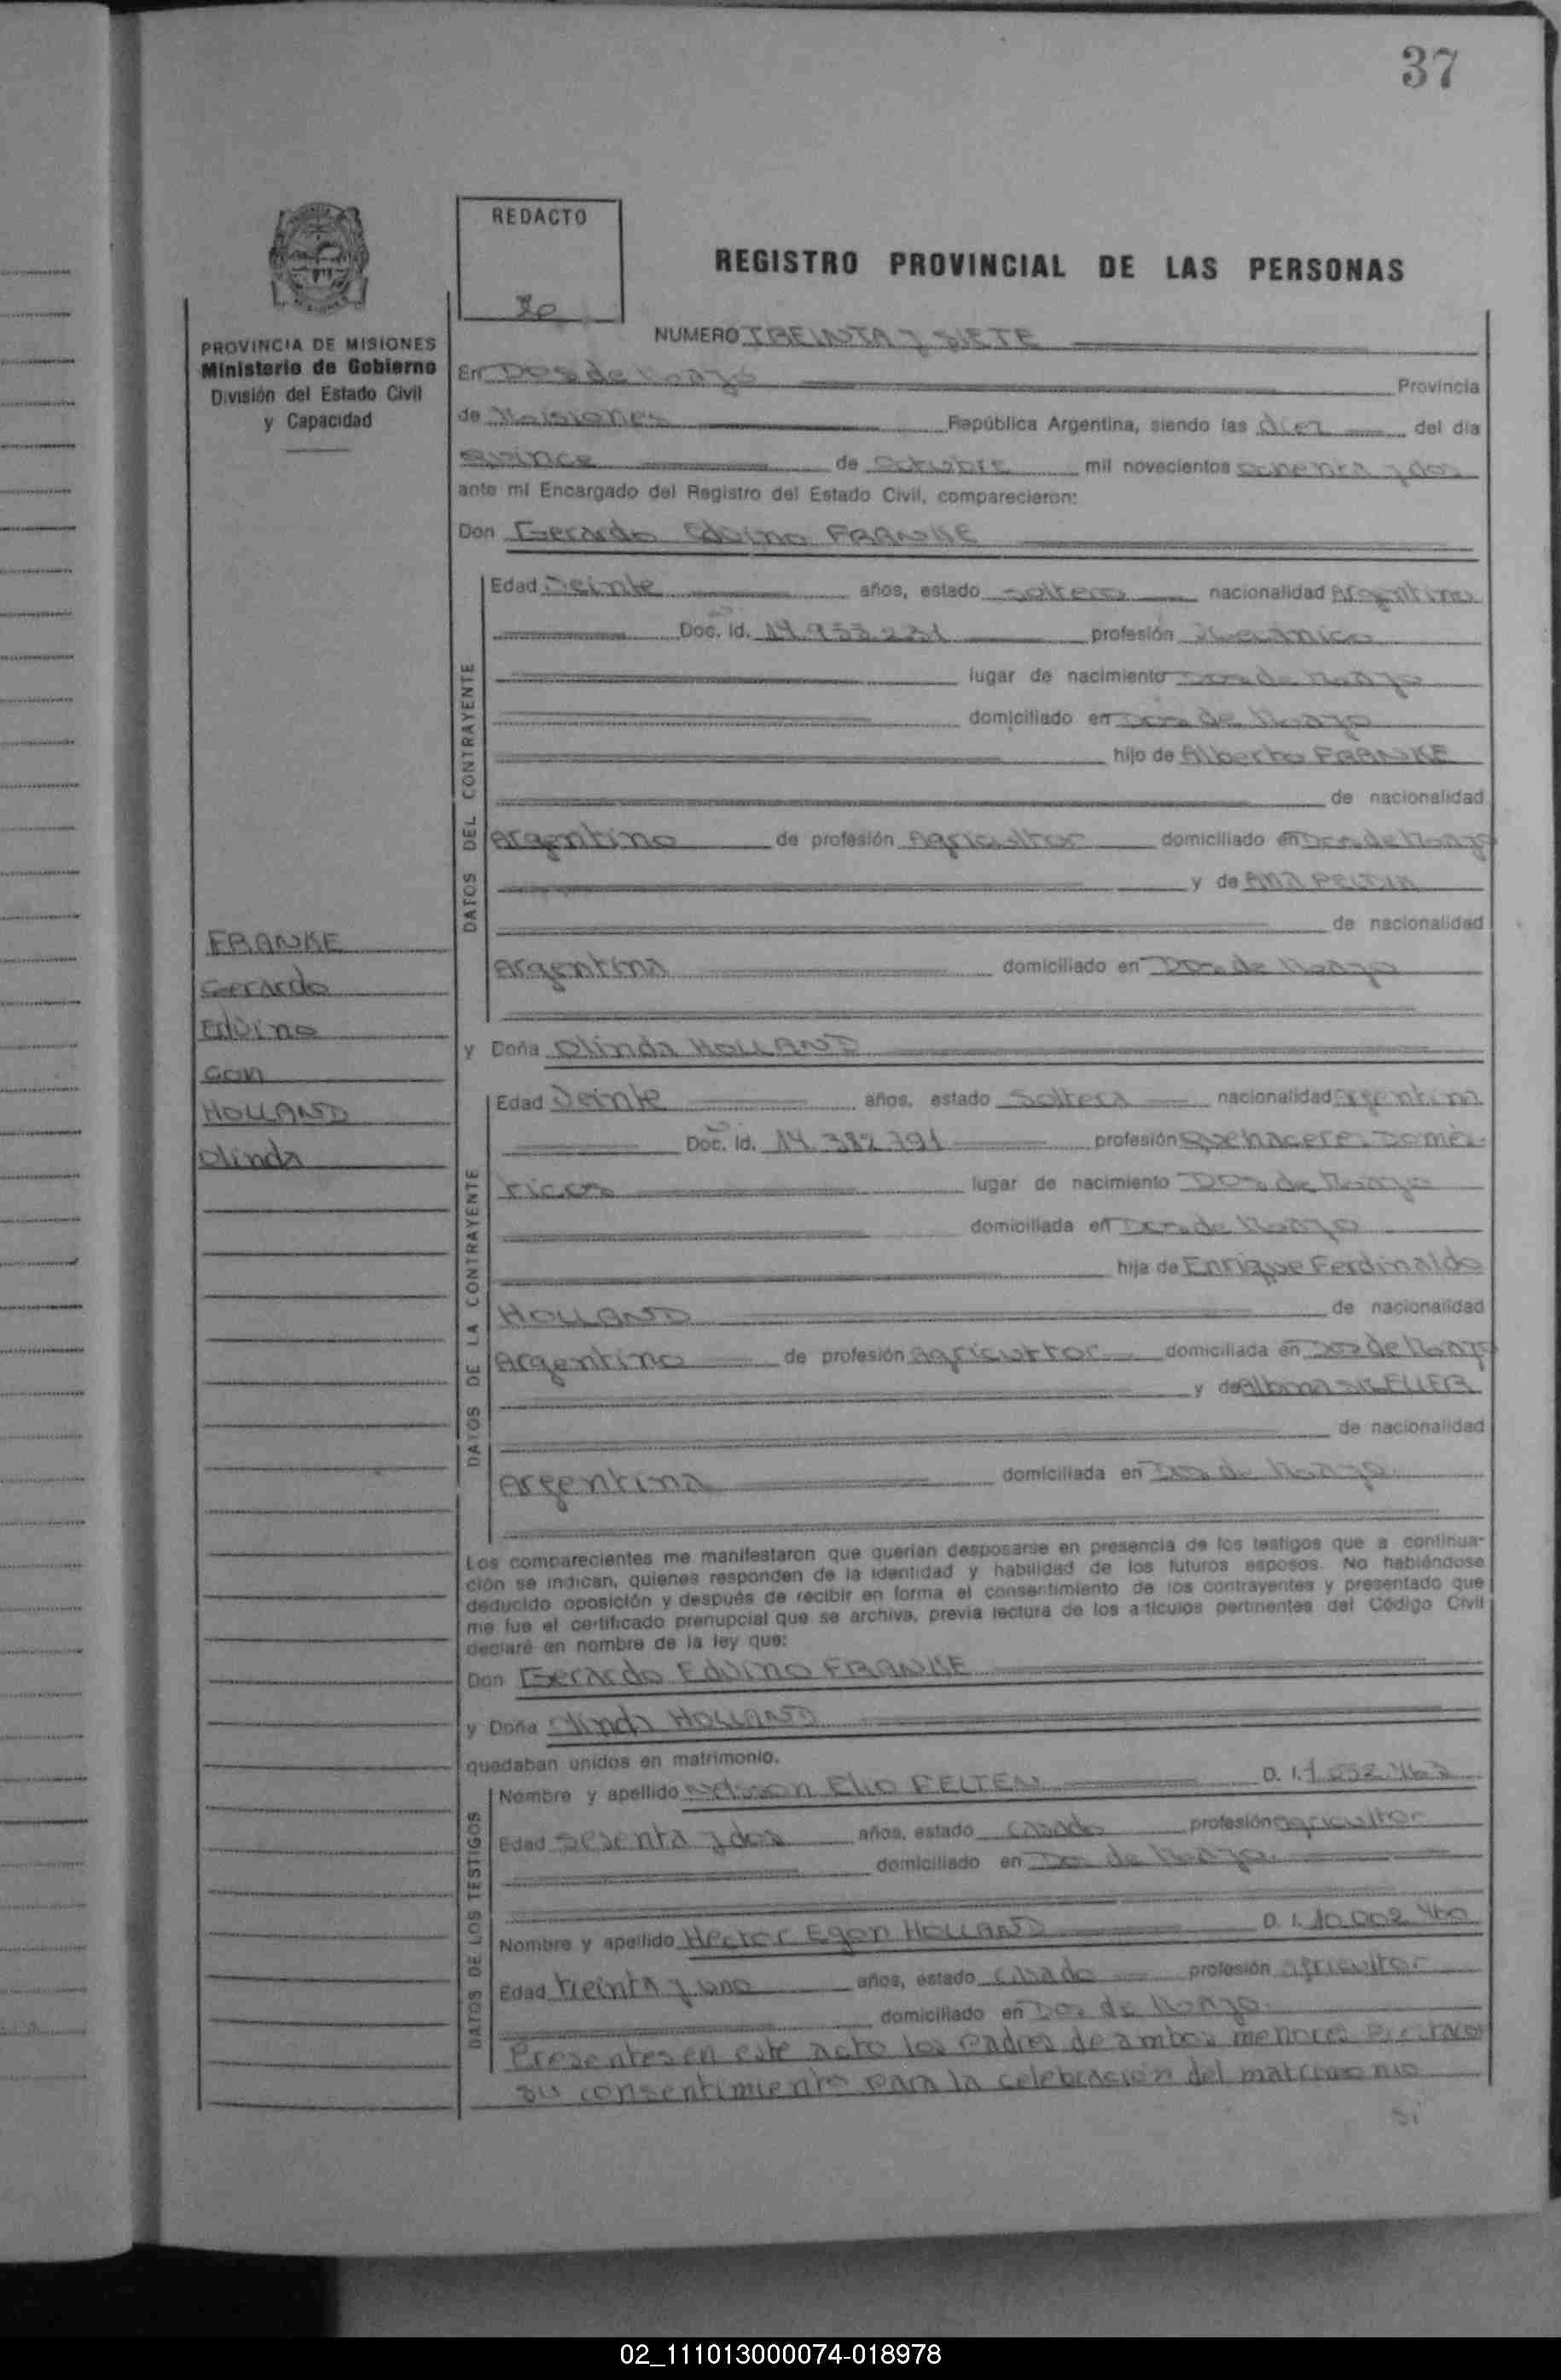 37
REDACTO
REGISTRO PROVINCIAL DE LAS PERSONAS
PROVINCIA DE MISIONES
Ministerio de Gobierno
División del Estado Civil
y Capacidad
NUMERO TREINTA Y SIETE
En Dos de Mayo Provincia
de Misiones República Argentina, siendo las diez del día
quince de octubre mil novecientos ochenta y dos
ante mi Encargado del Registro del Estado Civil, comparecieron:
Don Gerardo Edvino FRANKE
DATOS DEL CONTRAYENTE
Edad Veinte años, estado soltero nacionalidad Argentino
Doc. Id. 14.953.231 profesión Mecánico
lugar de nacimiento Dos de Mayo
domiciliado en Dos de Mayo
hijo de Alberto FRANKE
de nacionalidad
Argentino de profesión Agricultor domiciliado en Dos de Mayo
y de ANA
de nacionalidad
Argentina domiciliado en Dos de Mayo
FRANKE
Gerardo
Edvino
con
HOLLAND
Olinda
y Doña Olinda HOLLAND
DATOS DE LA CONTRAYENTE
Edad Veinte años, estado Soltera nacionalidad Argentina
Doc. Id. 14.382.791 profesión Quehaceres Domés-
ticos lugar de nacimiento Dos de Mayo
domiciliada en Dos de Mayo
hija de Enrique Ferdinaldo
HOLLAND de nacionalidad
Argentino de profesión agricultor domiciliada en Dos de Mayo
y de Albina
de nacionalidad
Argentina domiciliada en Dos de Mayo
Los comparecientes me manifestaron que querían desposarse en presencia de los testigos que a continua-
ción se indican, quienes responden de la identidad y habilidad de los futuros esposos. No habiéndose
deducido oposición y después de recibir en forma el consentimiento de los contrayentes y presentado que
me fue el certificado prenupcial que se archiva, previa lectura de los artículos pertinentes del Código Civil
declaré en nombre de la ley que:
Don Gerardo Edvino FRANKE
y Doña Olinda HOLLAND
quedaban unidos en matrimonio.
DATOS DE LOS TESTIGOS
Nombre y apellido Nelson Elio FELTEN D. I.
Edad Sesenta y dos años, estado casado profesión agricultor
domiciliado en Dos de Mayo
Nombre y apellido Hector Egon HOLLAND D. I. 10.002.460
Edad treinta y uno años, estado casado profesión agricultor
domiciliado en Dos de Mayo
Presentes en este acto los Padres de ambos menores
su consentimiento para la celebración del matrimonio
02_111013000074-018978